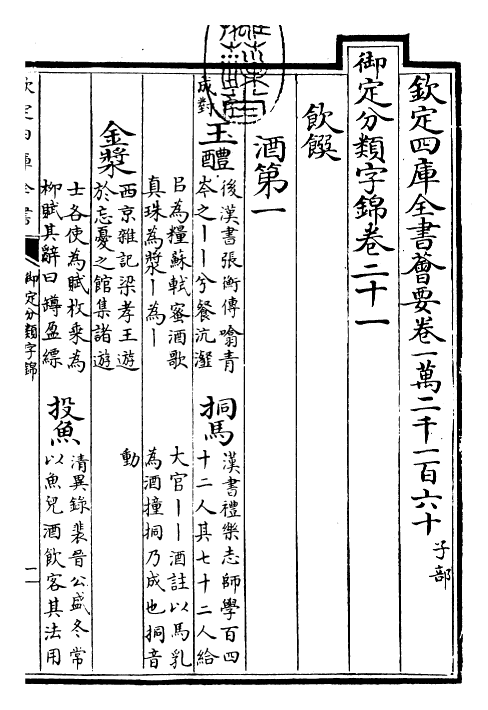 欽定四庫全書薈要卷一萬二千一百六十 子部
御定分類字錦卷二十一
飲饌
酒第一
成對
玉醴
後漢書張衡傳噏青
岑之丨丨兮餐沆瀣
㠯為糧蘇軾蜜酒歌
真珠為漿丨為丨
挏馬
漢書禮樂志師學百四
十二人其七十二人給
大官丨丨酒註以馬乳
為酒撞挏乃成也挏音
動
金漿
西京雜記梁孝王遊
於忘憂之館集諸遊
士各使為賦枚乘為
柳賦其辭曰罇盈縹
投魚
清異錄裴晉公盛冬常
以魚兒酒飲客其法用
欽定四庫全書
御定分類字錦
一